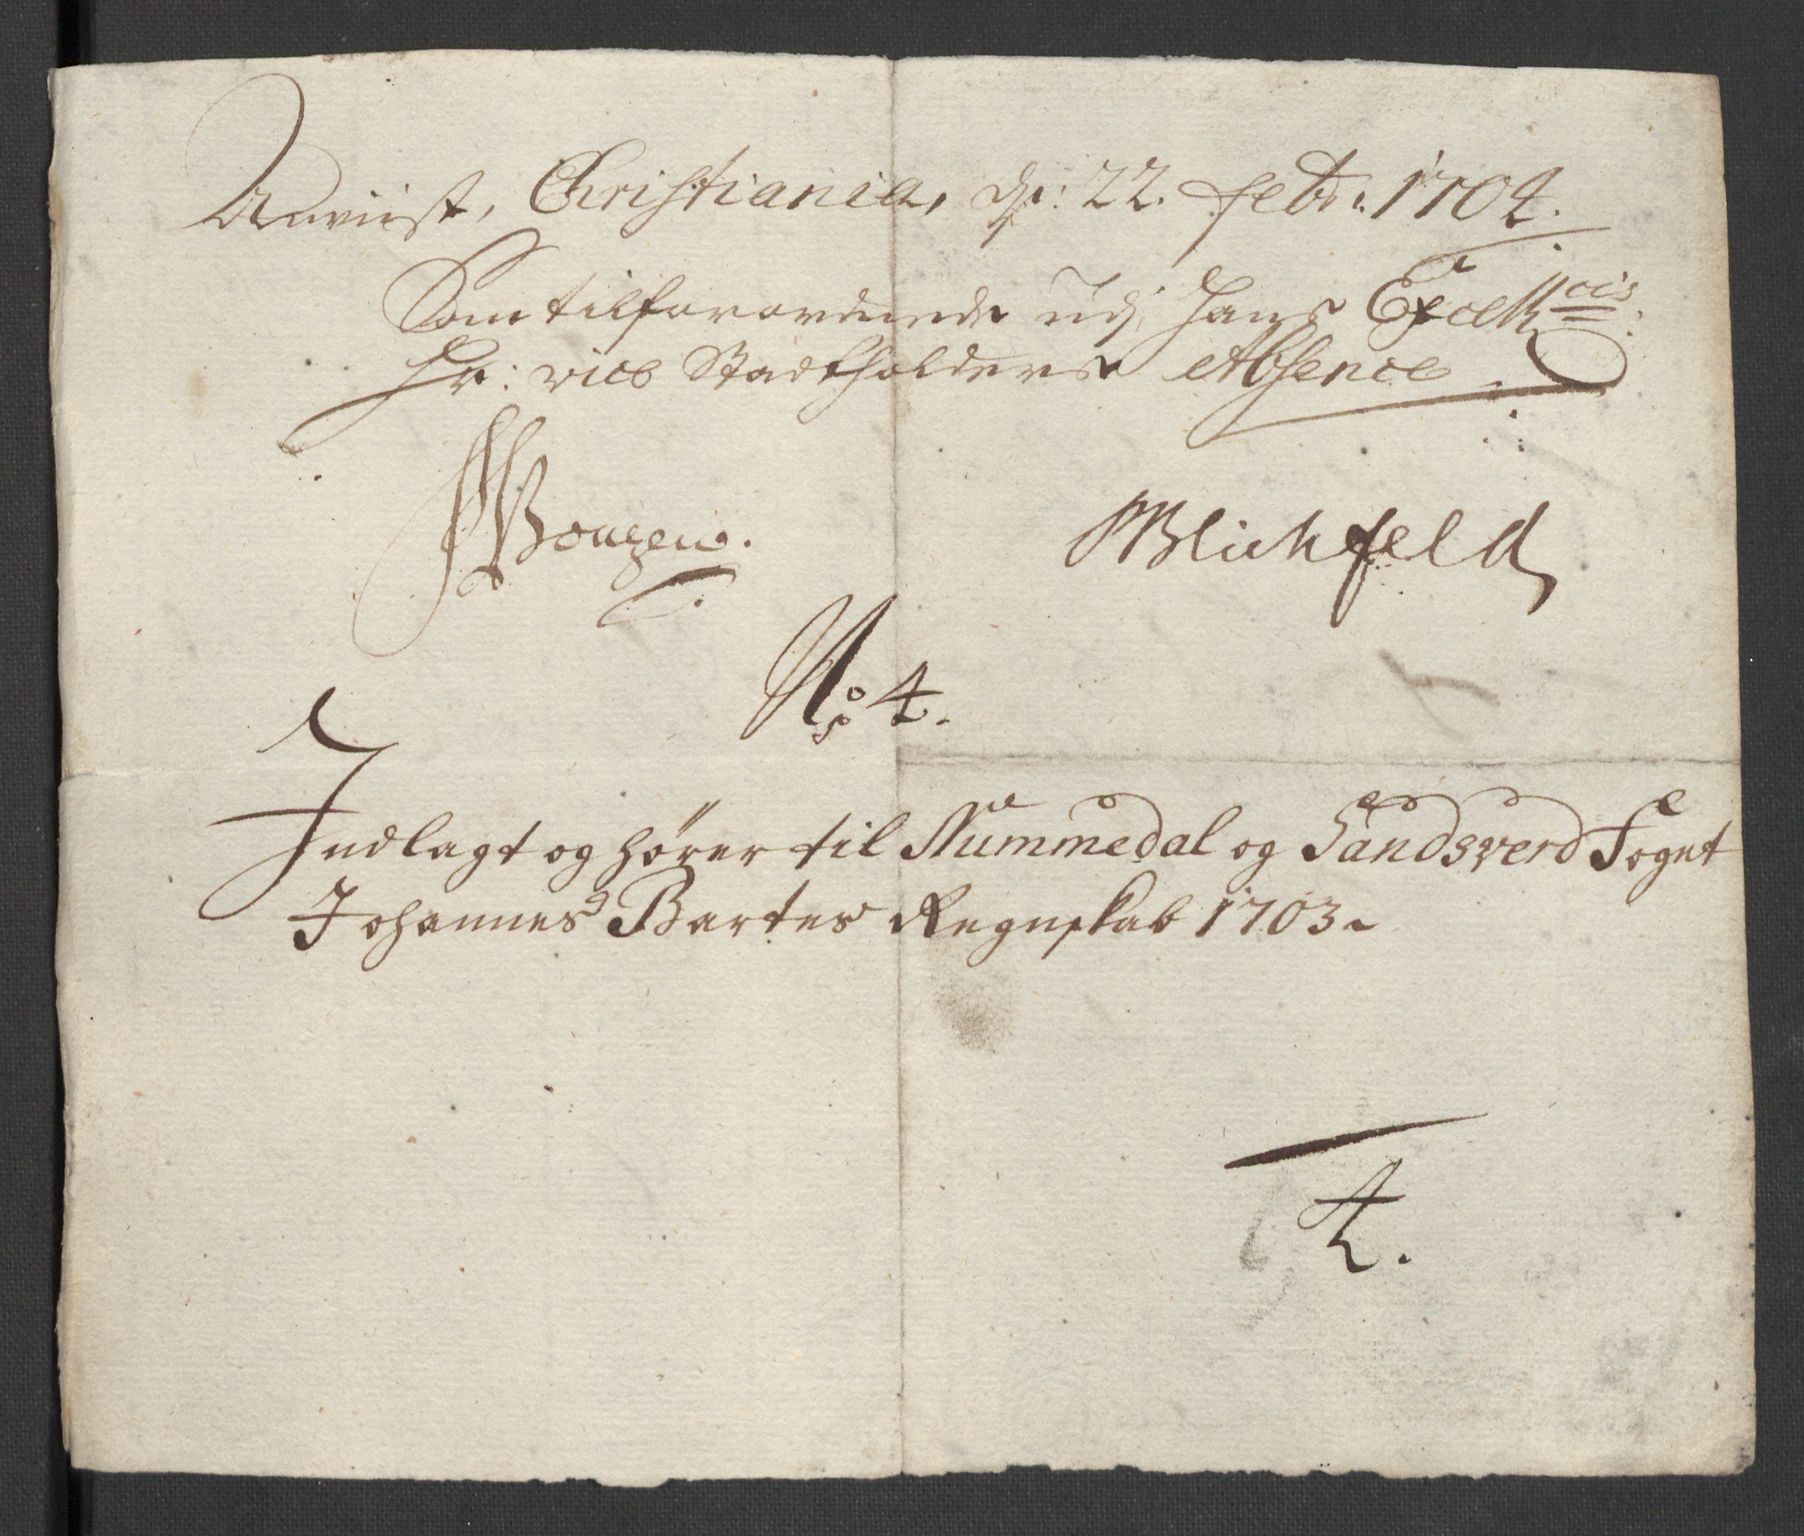 Anviist, Christiania, d: 22. Febr: 1704.
Som tilforordnede udj Hans Excell cis:
Hr: vice Stadtholders Absence
Blichfeld
No: 4.
Indlagt og hører til Nummedal og Sandsverd Fogut
Johannes Bartes Regnskab 1703
4.